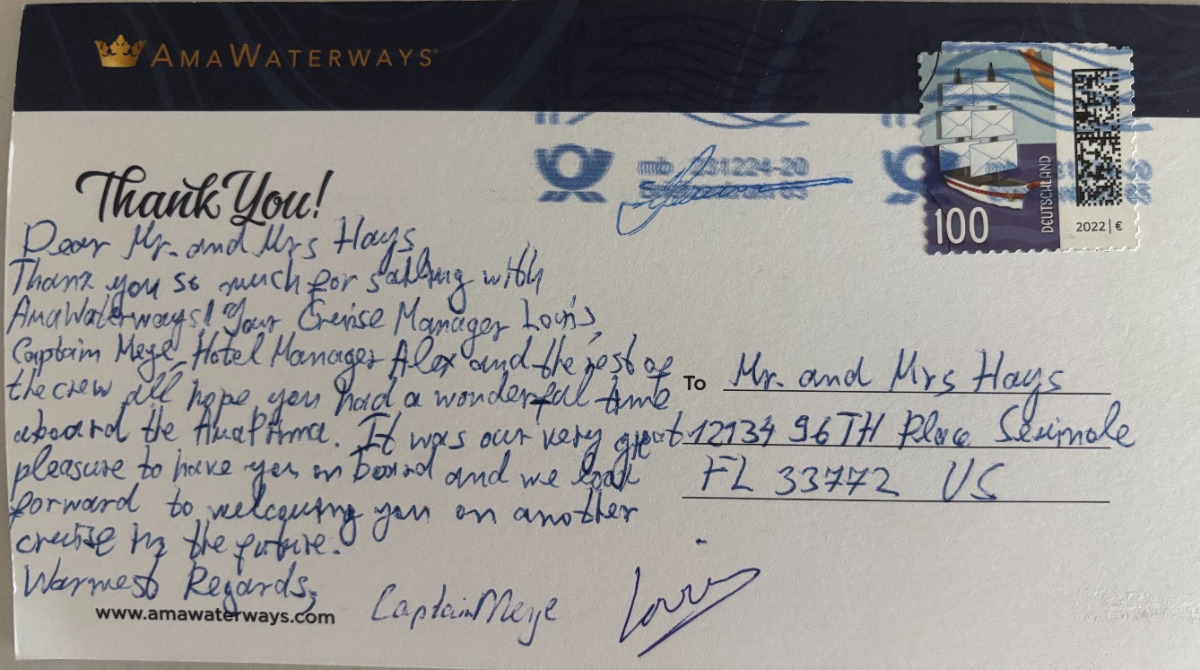 AMAWATERWAYS
mb 231224-20
DEUTSCHLAND
100
2022 | €
Thank You!
Dear Mr. and Mrs Hays
Thank you so much for sailing with
AmaWaterways! Your Cruise Manager Louis,
Captain Meye, Hotel Manager Alex and the rest of
the crew all hope you had a wonderful time
aboard the AmaPrima. It was our very great
pleasure to have you on board and we look
forward to welcoming you on another
cruise in the future.
Warmest Regards,
Captain Meye
Louis
www.amawaterways.com
To Mr. and Mrs Hays
12134 96TH Place Seminole
FL 33772 US